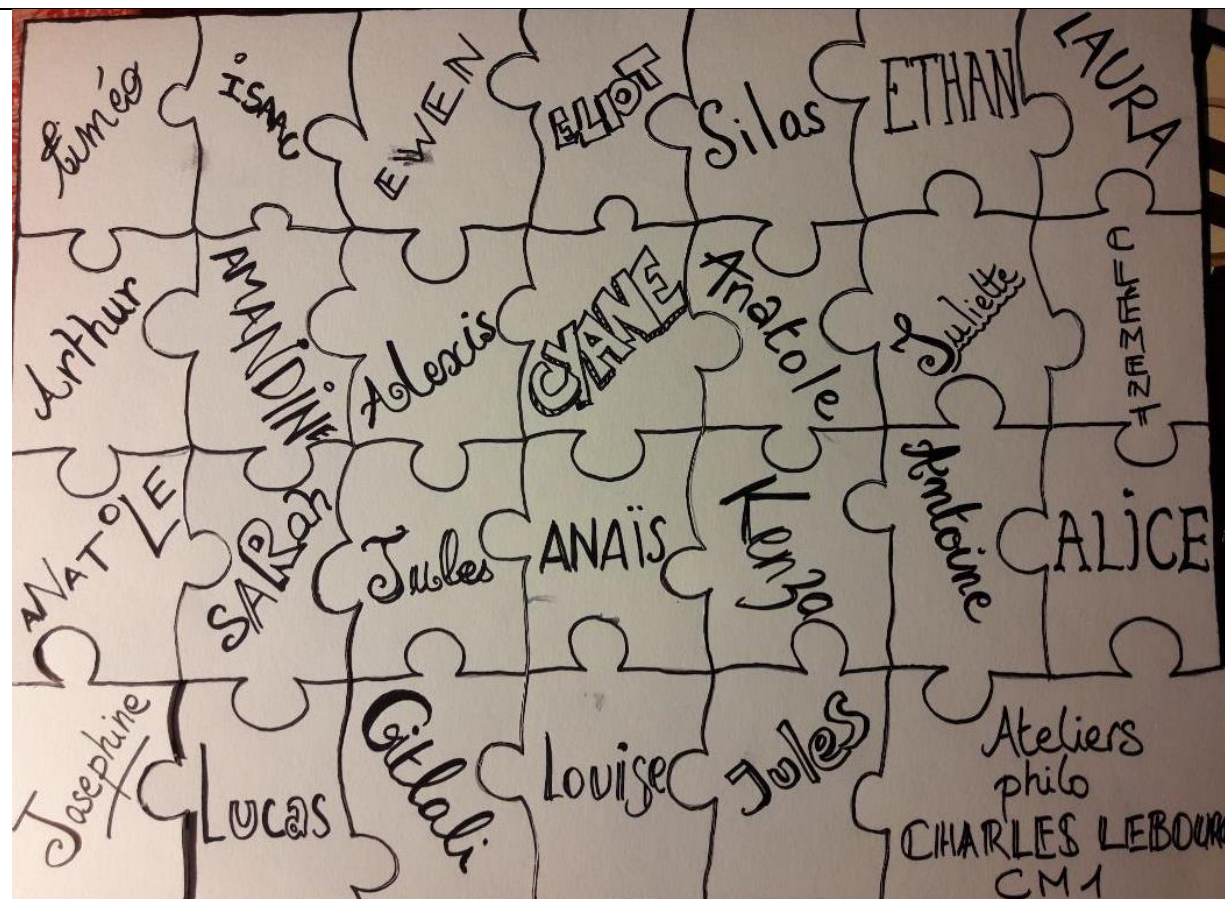 Euméo
ISAAC
EWEN
ELIOT
Silas
ETHAN
LAURA
Arthur
AMANDINE
Alexis
CYANE
Anatole
Juliette
CLEMENT
ANATOLE
SARah
Jules
ANAÏS
Kenza
Antoine
ALiCE
Josephine
LUCas
Citlali
Louise
Jules
Ateliers
philo
CHARLES LEBOURG
CM1